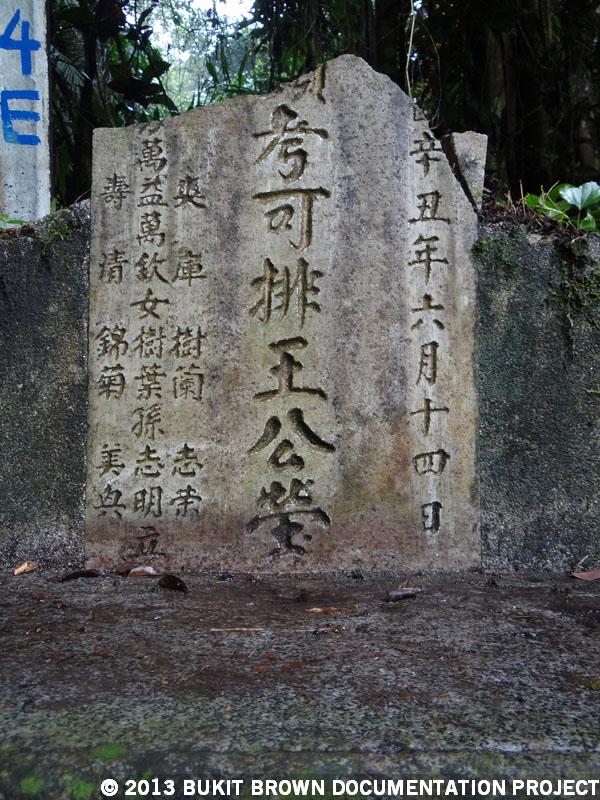 4
E
辛丑年六月十四日
考可排王公塋
爽 庫 樹蘭 志荣
萬益萬欽女樹葉孫志明立
壽 清 錦菊 美
© 2013 BUKIT BROWN DOCUMENTATION PROJECT